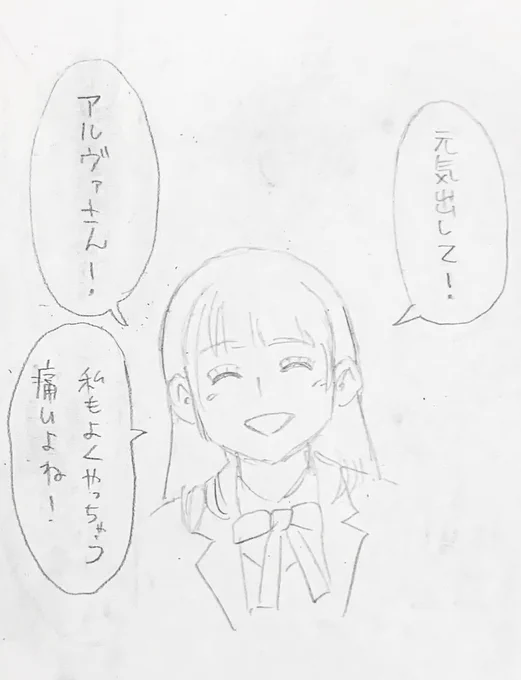 元気出して！
アルヴァさん！
私もよくやっちゃう
痛いよね！